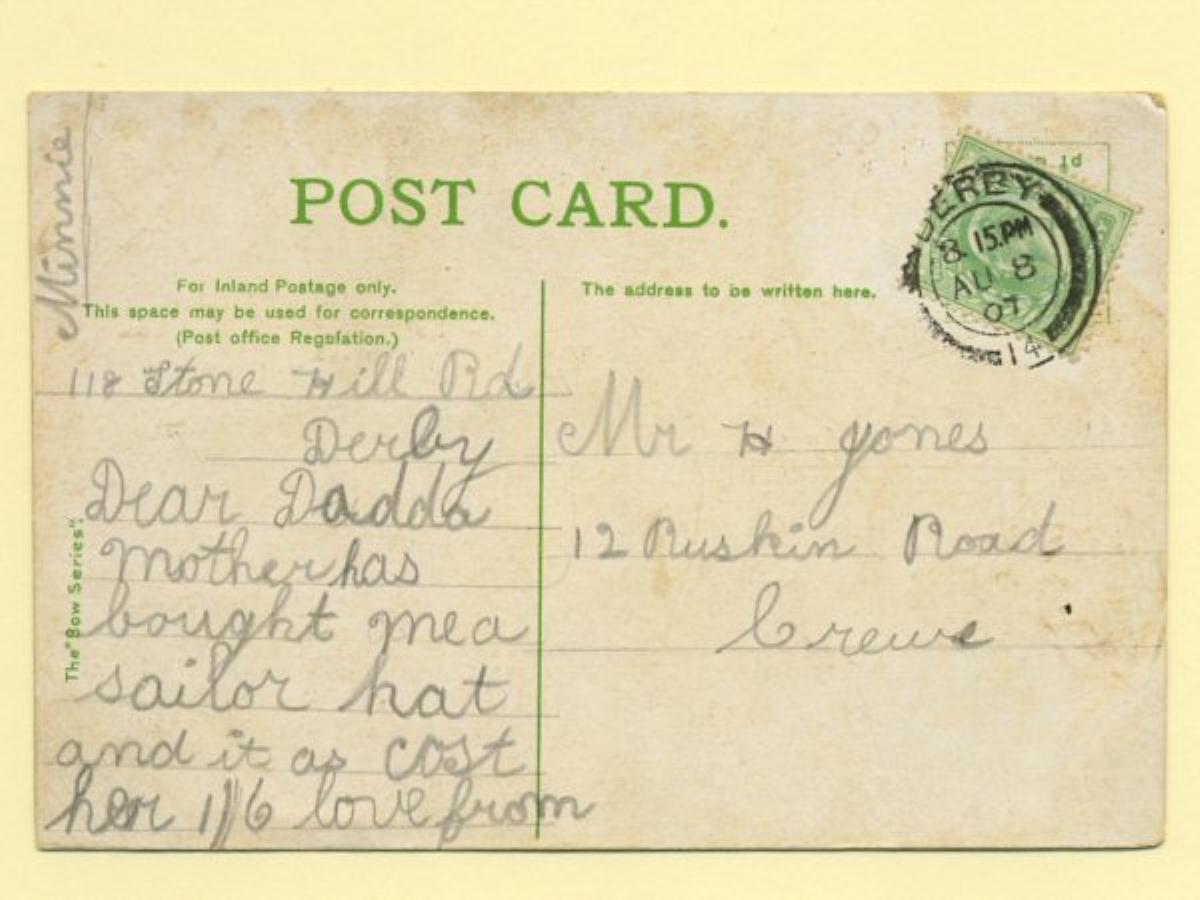 POST CARD.
For Inland Postage only.
This space may be used for correspondence.
(Post office Regulation.)
The address to be written here.
1d
DERBY
8. 15. PM
AU 8
07
14
118 Stone Hill Rd
Derby
Dear Dadda
Mother has
bought me a
sailor hat
and it as cost
her 1/6 love from
Minnie
Mr H Jones
12 Ruskin Road
Crewe
The "Bow Series".